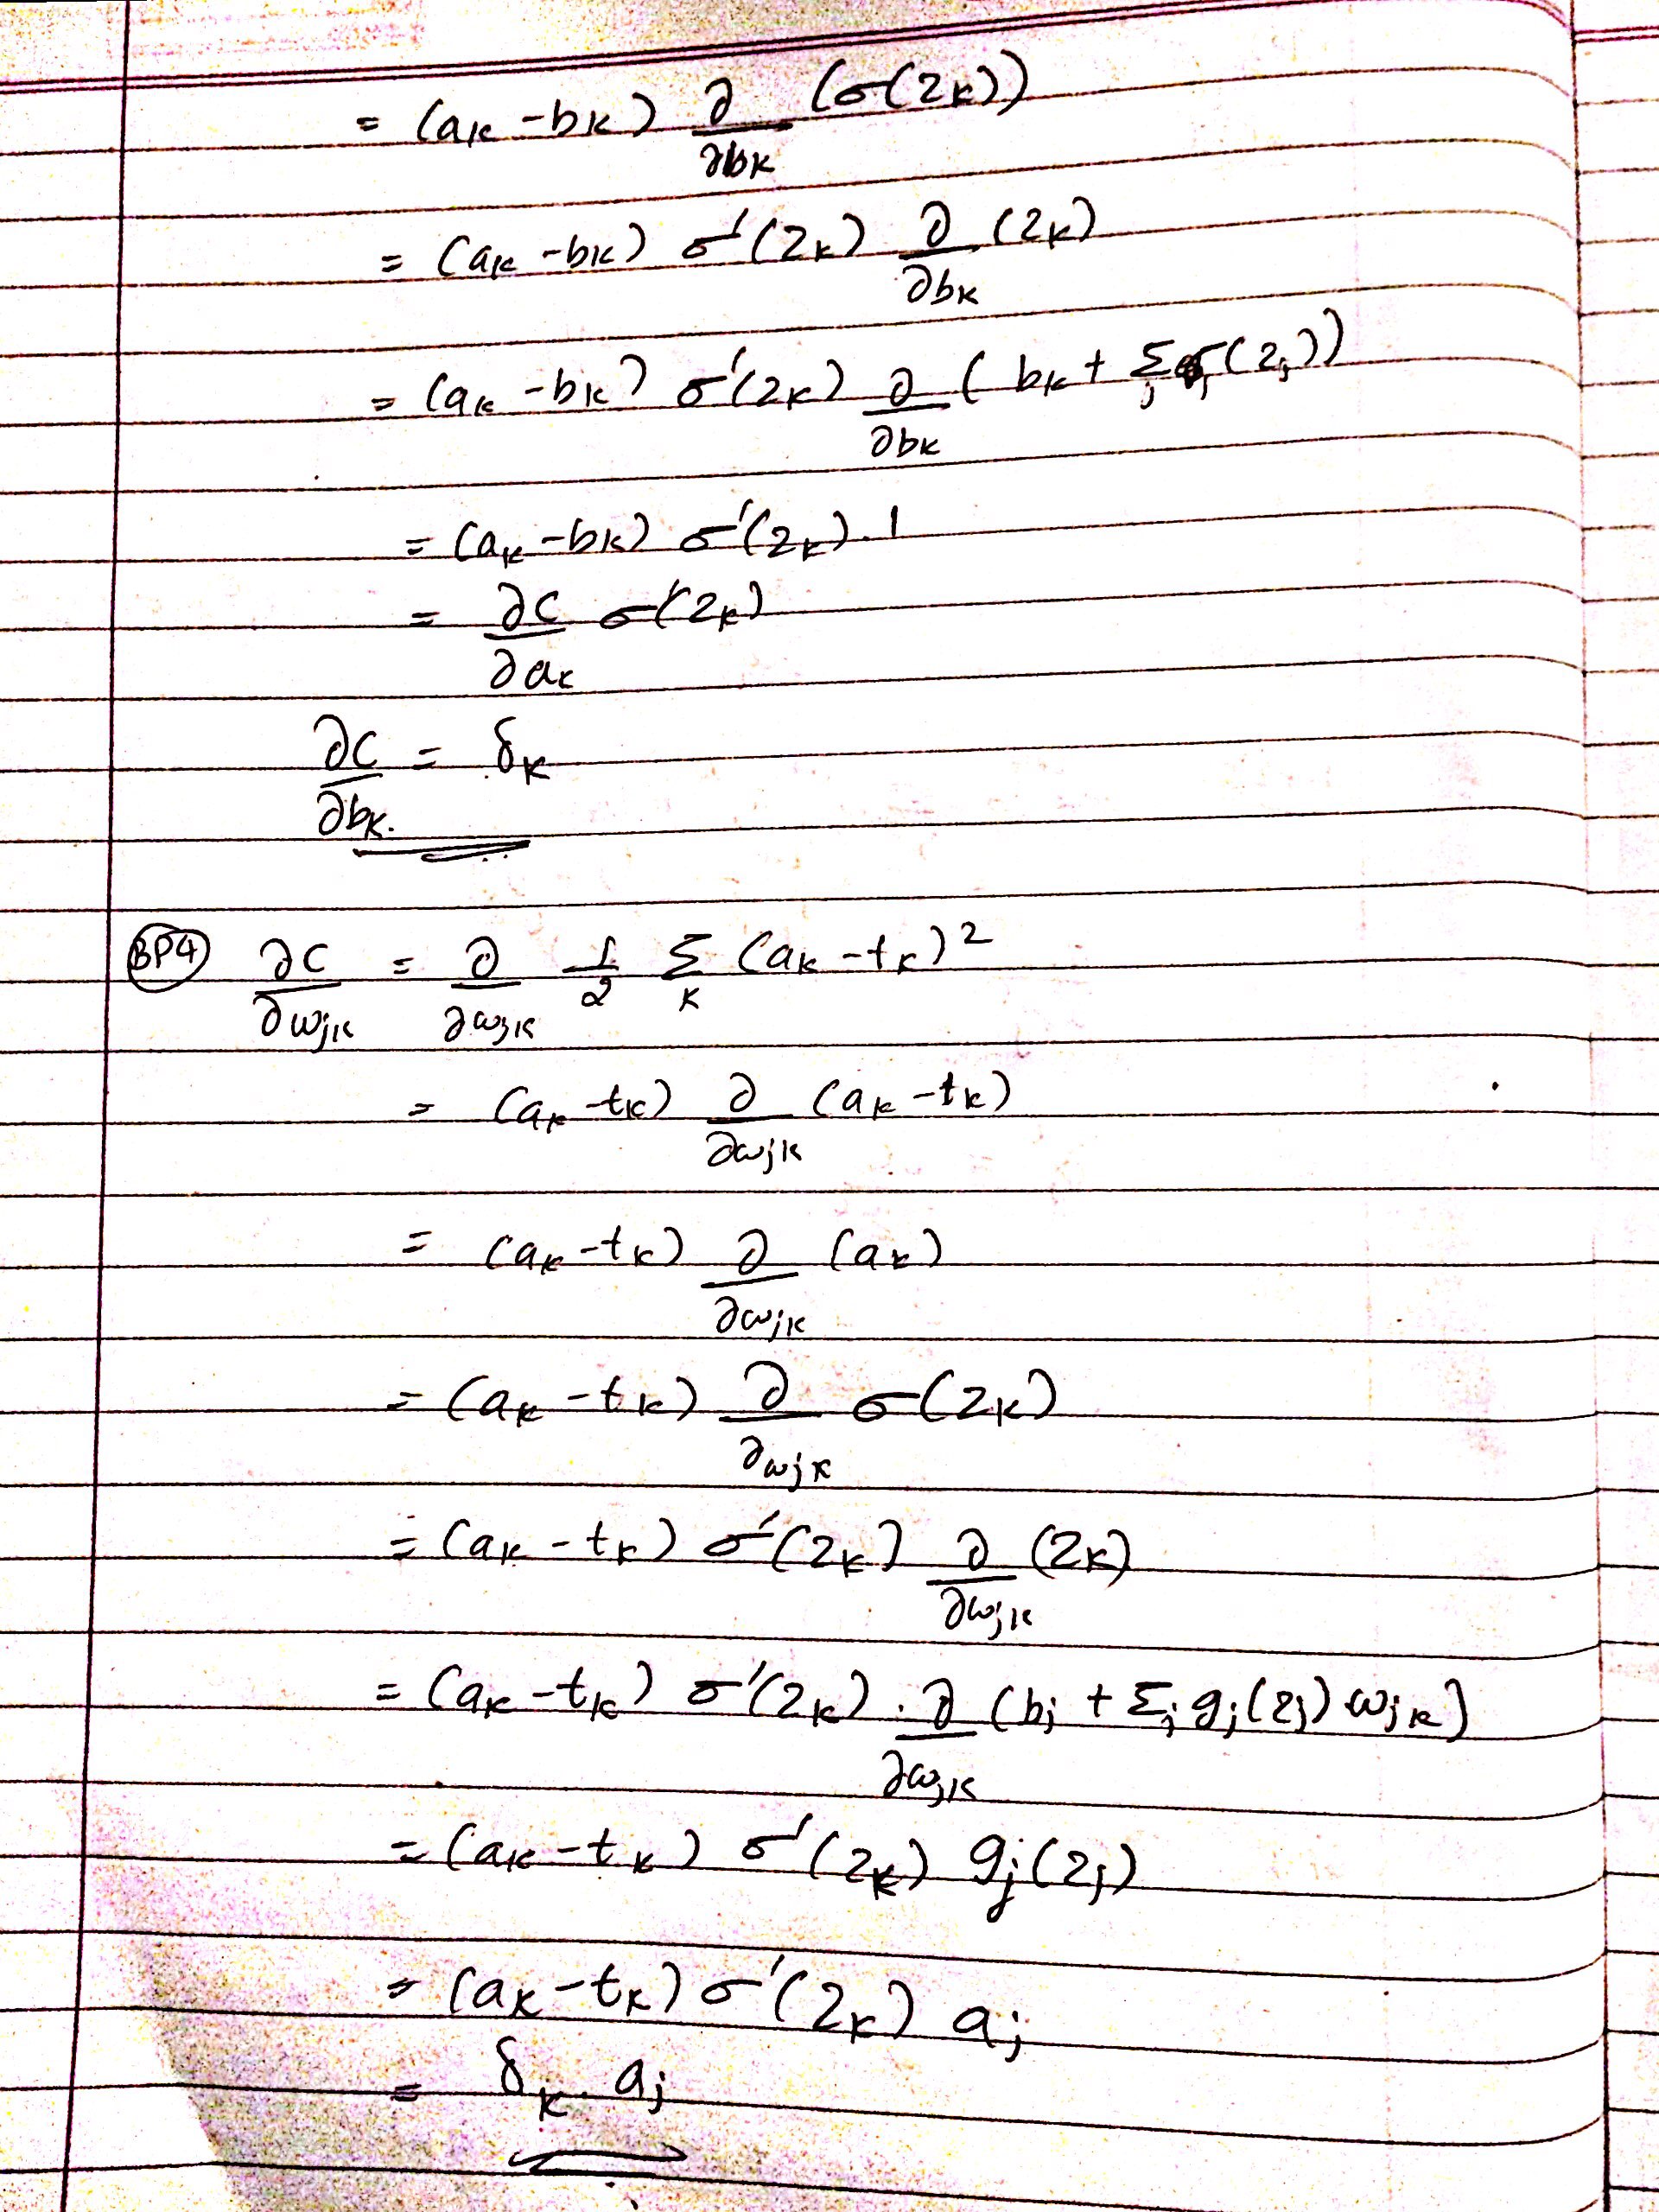 = (aₖ - bₖ) ∂/∂bₖ (σ(zₖ))
= (aₖ - bₖ) σ'(zₖ) ∂/∂bₖ (zₖ)
= (aₖ - bₖ) σ'(zₖ) ∂/∂bₖ (bₖ + Σⱼ (zⱼ))
= (aₖ - bₖ) σ'(zₖ) . 1
= ∂C/∂aₖ σ'(zₖ)
∂C/∂bₖ. = δₖ
BP4 ∂C/∂wⱼₖ = ∂/∂wⱼₖ 1/2 Σₖ (aₖ - tₖ)²
= (aₖ - tₖ) ∂/∂wⱼₖ (aₖ - tₖ)
= (aₖ - tₖ) ∂/∂wⱼₖ (aₖ)
= (aₖ - tₖ) ∂/∂wⱼₖ σ(zₖ)
= (aₖ - tₖ) σ'(zₖ) ∂/∂wⱼₖ (zₖ)
= (aₖ - tₖ) σ'(zₖ) . ∂/∂wⱼₖ (bⱼ + Σⱼ gⱼ(zⱼ) wⱼₖ)
= (aₖ - tₖ) σ'(zₖ) gⱼ(zⱼ)
= (aₖ - tₖ) σ'(zₖ) aⱼ
= δₖ . aⱼ